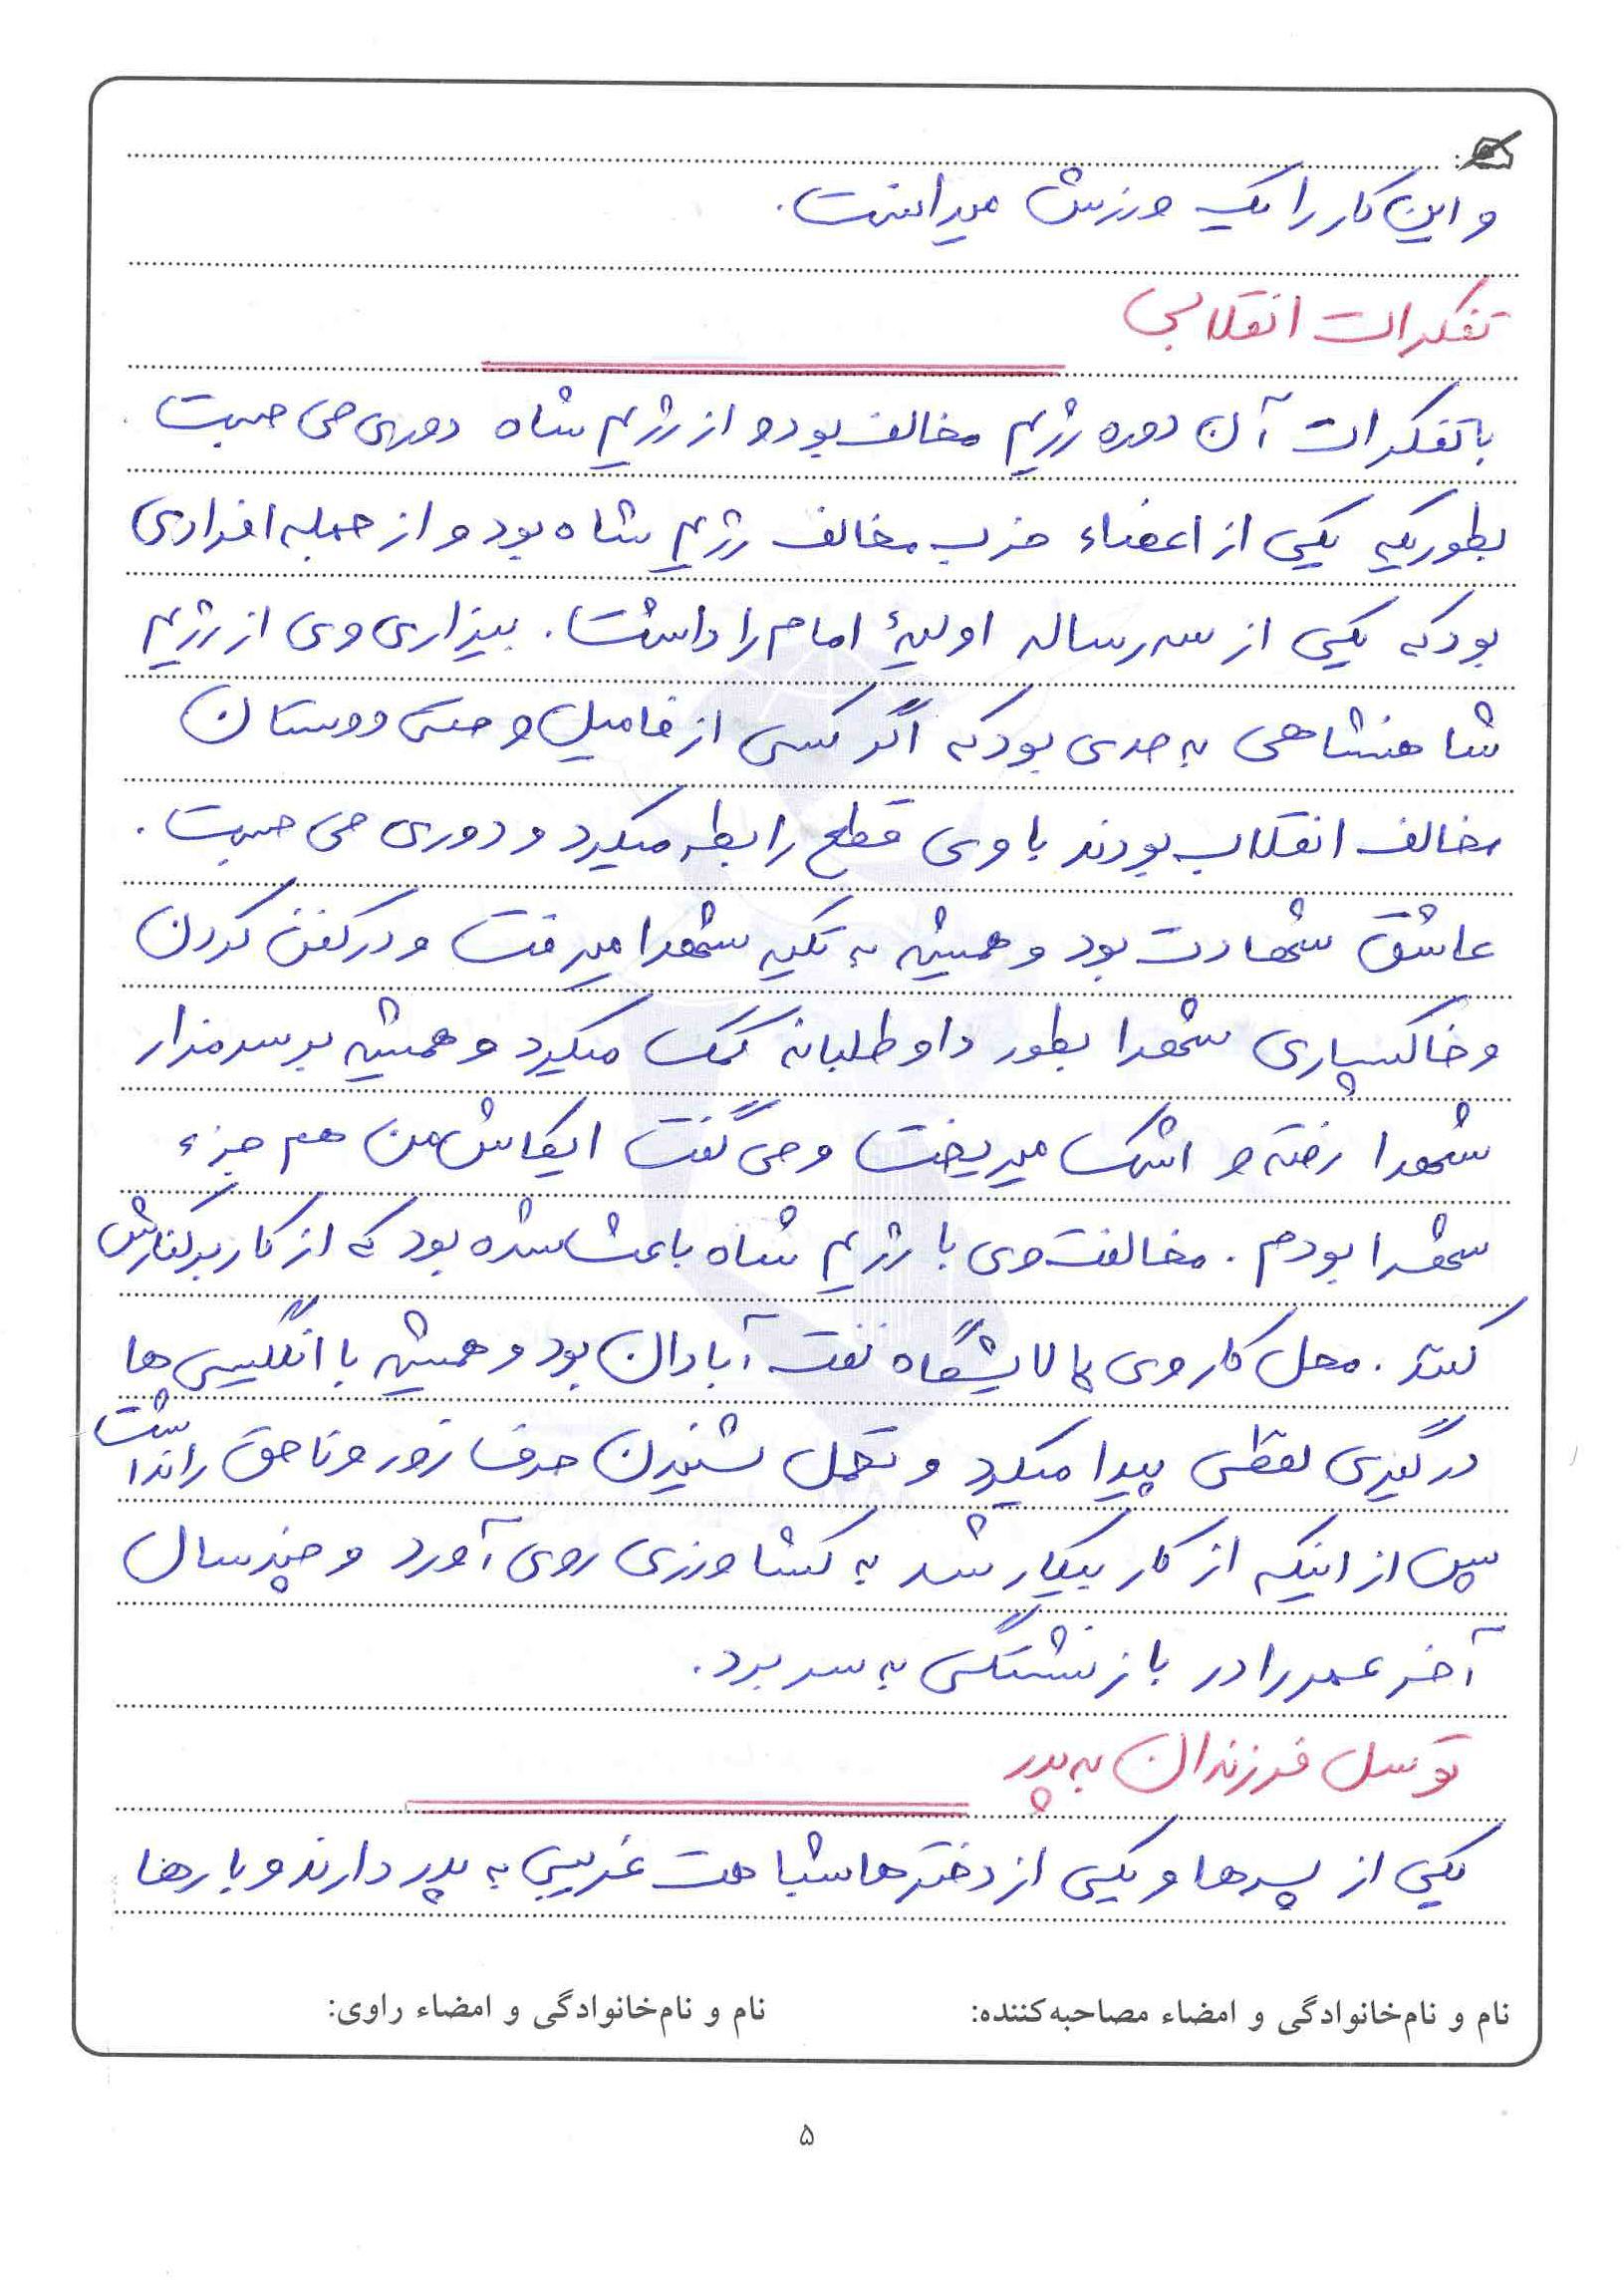 و این کار را یک ورزش میدانست.
تفکرات انقلابی
با تفکرات آن دوره رژیم مخالف بود و از رژیم شاه دوری می جست.
بطوریکه یکی از اعضاء حزب مخالف رژیم شاه بود و از جمله افرادی
بود که یکی از سه رساله اولیهٔ امام را داشت. بیزاری وی از رژیم
شاهنشاهی به حدی بود که اگر کسی از فامیل و حتی دوستان
مخالف انقلاب بودند با وی قطع رابطه میکرد و دوری می جست.
عاشق شهادت بود و همیشه به تکیه شهدا میرفت و در کفن کردن
و خاکسپاری شهدا بطور داوطلبانه کمک میکرد و همیشه بر سر مزار
شهدا رفته و اشک میریخت و می گفت ایکاش من هم جزء
شهدا بودم. مخالفت وی با رژیم شاه باعث شده بود که از کار برکنارش
کنند. محل کار وی پالایشگاه نفت آبادان بود و همیشه با انگلیسی ها
درگیری لفظی پیدا میکرد و تحمل شنیدن حرف زور و ناحق را نداشت
پس از اینکه از کار بیکار شد به کشاورزی روی آورد و چند سال
آخر عمر را در بازنشتگی به سر برد.
توسل فرزندان به پدر
یکی از پسرها و یکی از دخترها شباهت غریبی به پدر دارند و بارها
نام و نام‌خانوادگی و امضاء مصاحبه‌کننده: نام و نام‌خانوادگی و امضاء راوی:
۵